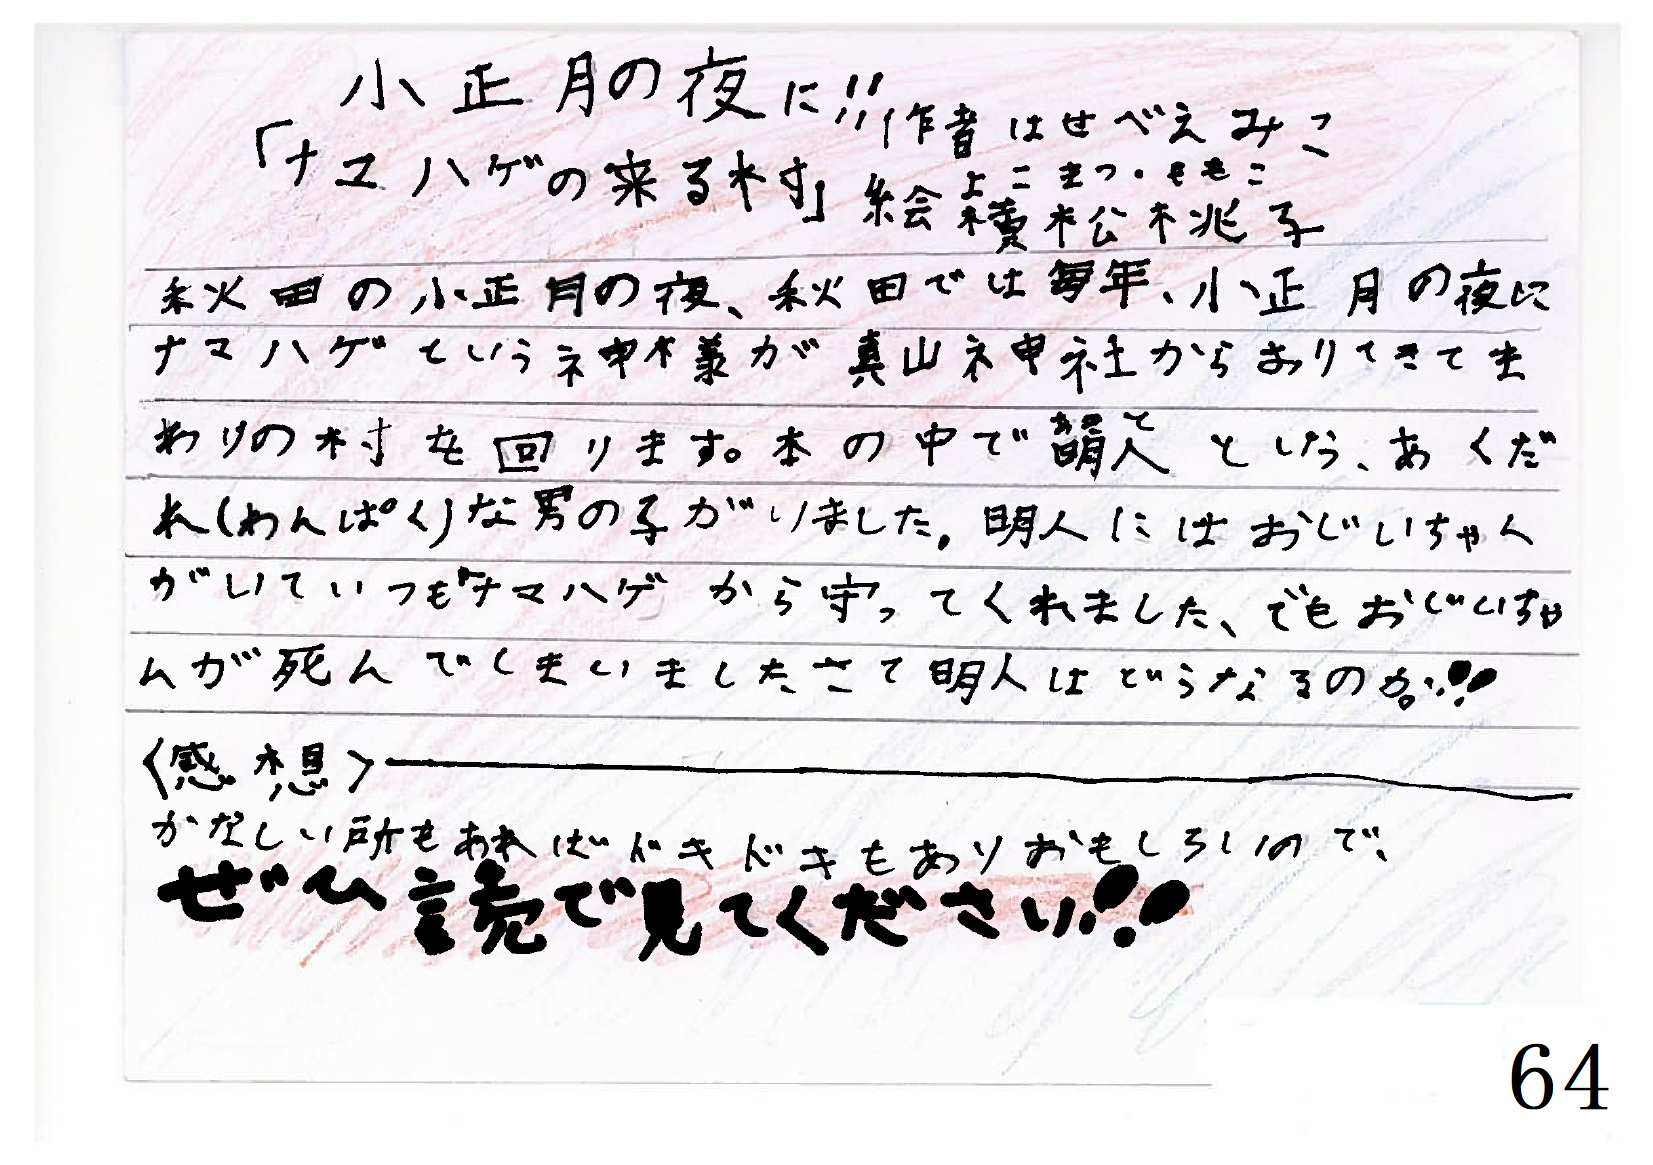 小正月の夜に!!
「ナマハゲの来る村」
作者 はせべえみこ
よこまつ・ももこ
絵 横松桃子
秋田の小正月の夜、秋田では毎年、小正月の夜に
ナマハゲという神様が真山神社からおりてきてま
わりの村を回ります。本の中で明人という、あくだ
れ(わんぱく)な男の子がいました。明人にはおじいちゃん
がいていつもナマハゲから守ってくれました、でもおじいちゃ
んが死んでしまいましたさて明人はどうなるのか!!
〈感想〉
かなしい所もあればドキドキもありおもしろいので、
ぜひ読で見てください!!
64